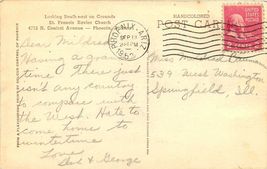 Looking South-west on Grounds
St. Francis Xavier Church
4715 N. Central Avenue — Phoenix,
HANDCOLORED
POST CARD
PHOENIX, ARIZ.
SEP 13
PM
1952
UNITED STATES
Dear Mildred
Having a grand
time. There just
isn't any country
to compare with
the West. Hate to
come home to
wintertime
Love
& George
Miss Mildred
539 West Washington
Springfield, Ill.